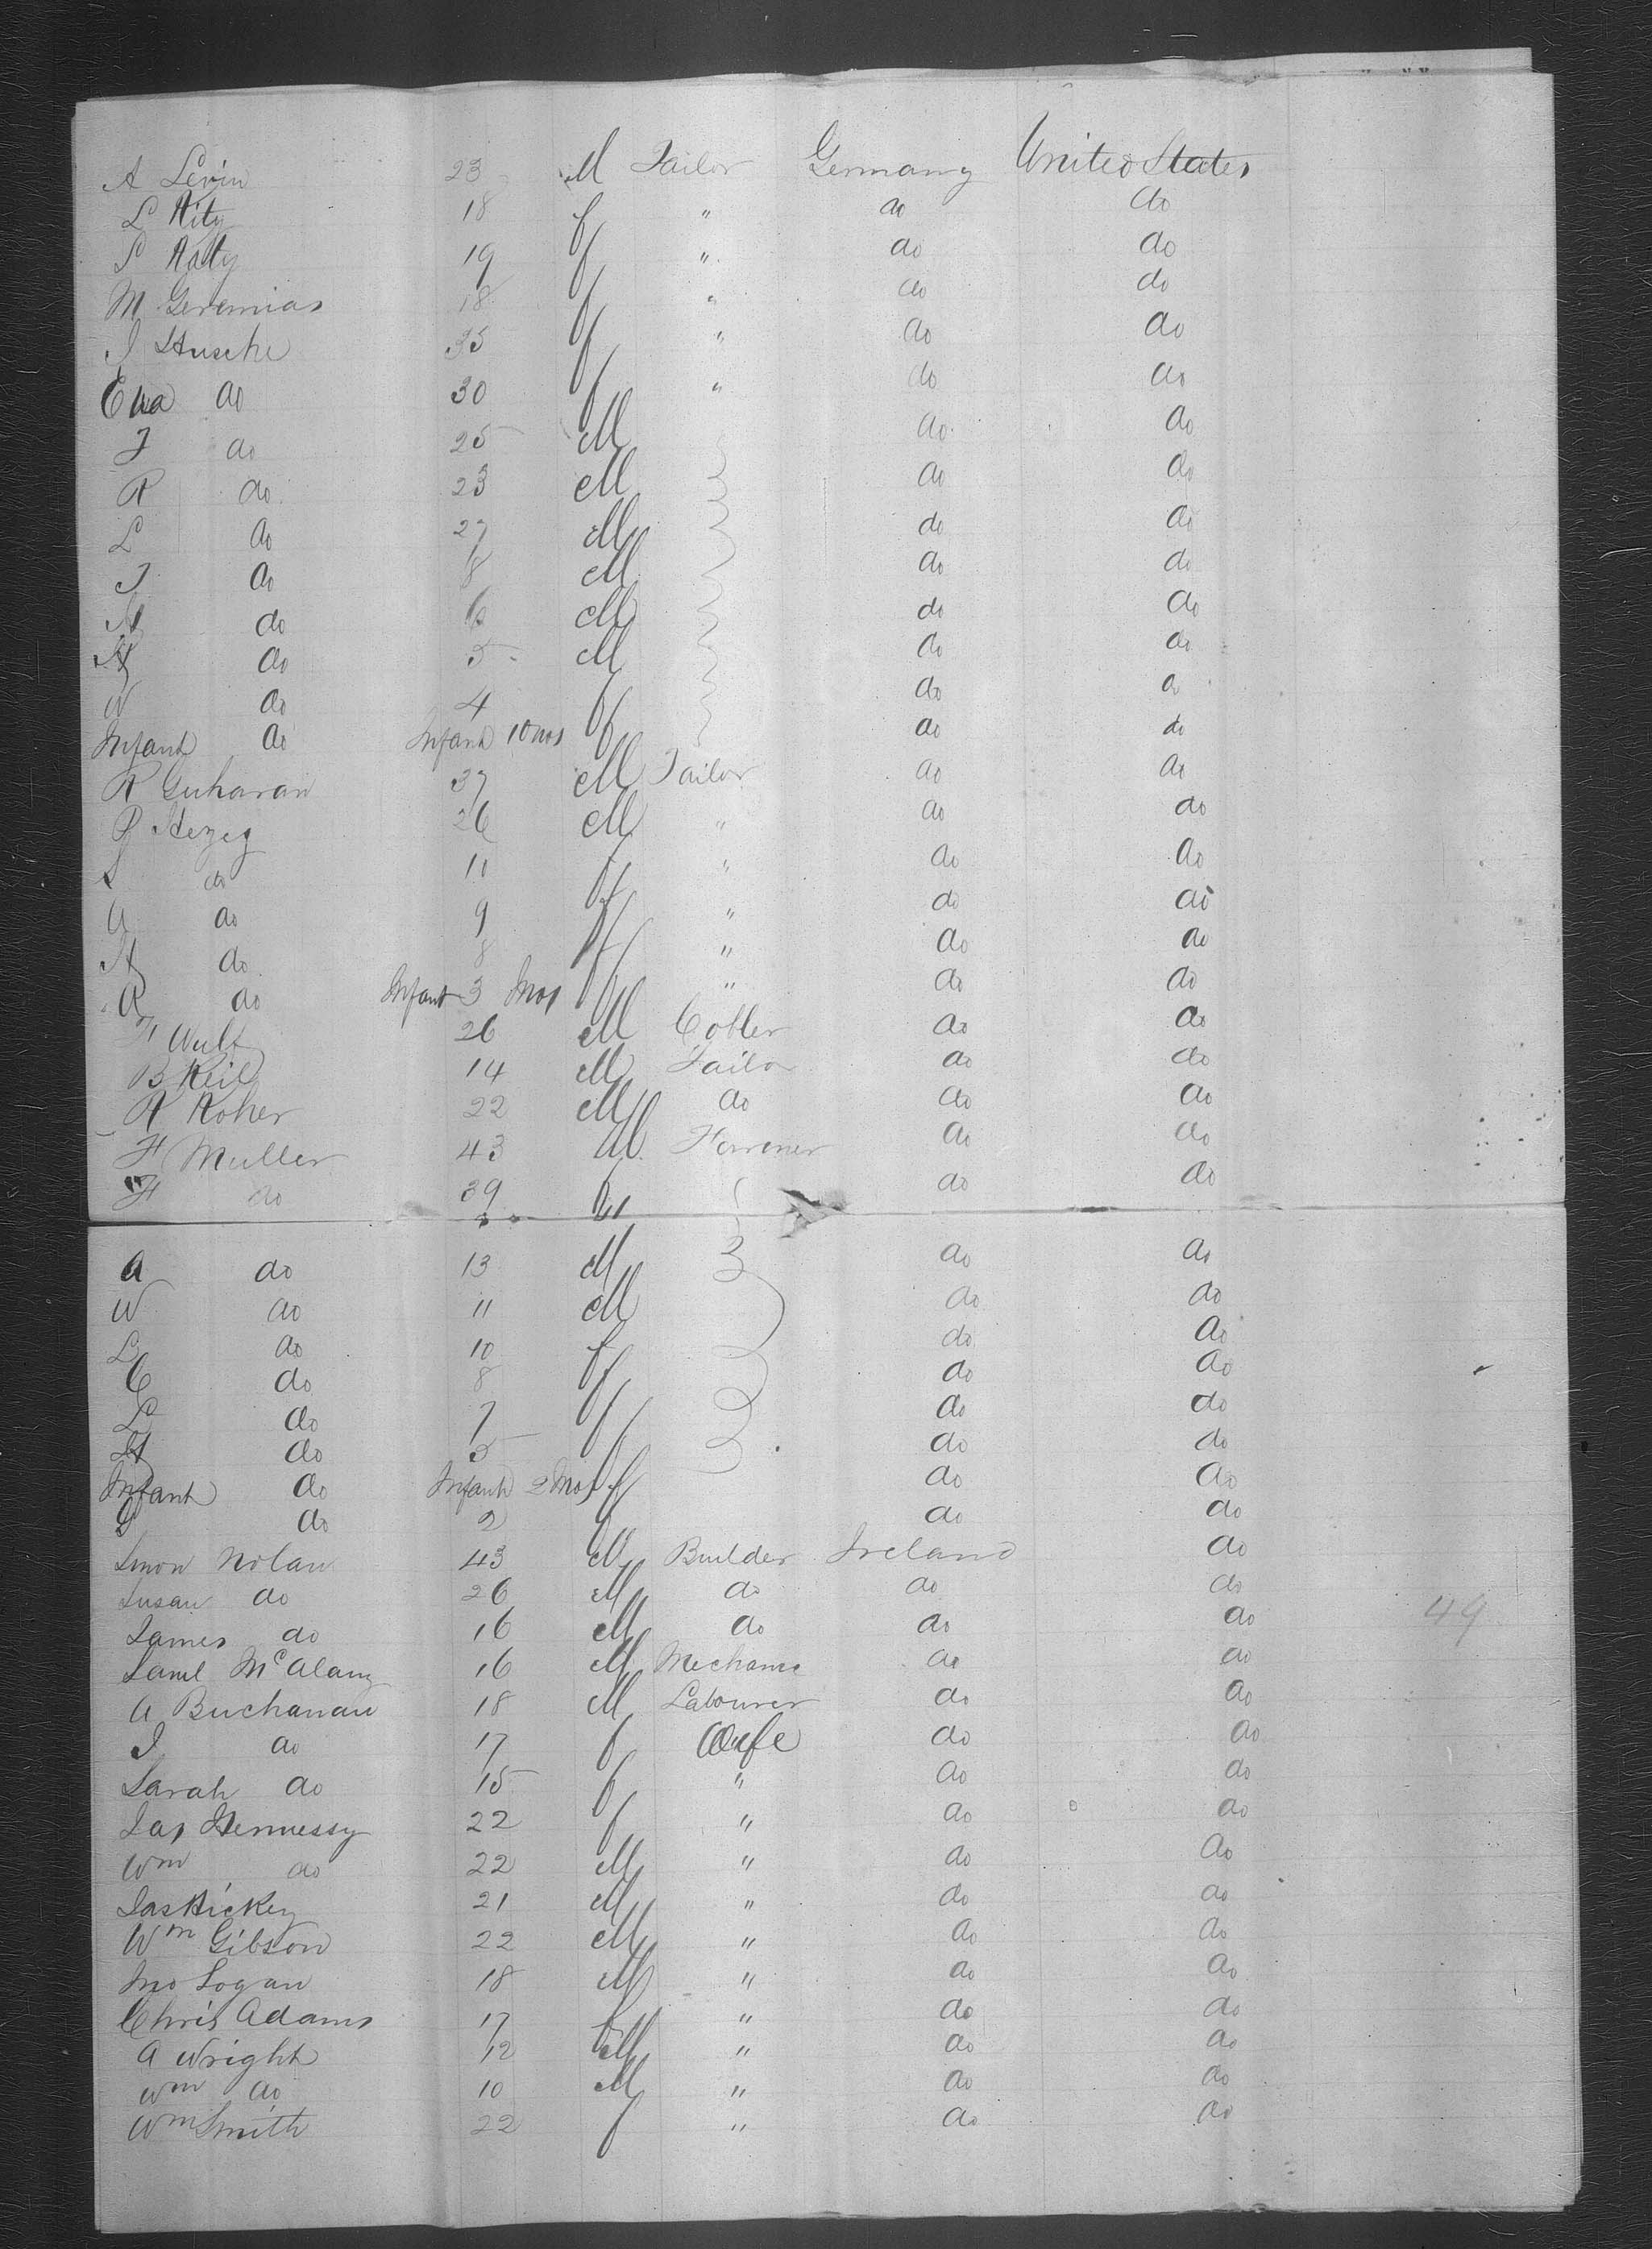 A Levin 23 M Tailor Germany United States
L Kitz 18 f " do do
P Katz 19 f " do do
M Geremias 18 f " do do
J Husche 35 f " do do
Eva do 30 f " do do
F do 25 M do do
R do 23 M do do
L do 27 M do do
J do 8 M do do
N do 6 M do do
H do 5 M do do
W do 4 f do do
Infant do Infant 10 mos f do do
R Guharan 37 M Tailor do do
P Hezeg 26 M " do do
S do 11 f " do do
A do 9 f " do do
H do 8 f " do do
R do Infant 3 Mos f " do do
H Wulf 26 M Cobler do do
B Keil 14 M Tailor do do
R Koher 22 M do do do
H Muller 43 M Farmer do do
H do 39 f do do
A do 13 M do do
W do 11 M do do
L do 10 f do do
C do 8 f do do
L do 7 f do do
H do 5 f do do
Infant do Infant 2 Mos f do do
G do 2 f do do
Simon Nolan 43 M Builder Ireland do
Susan do 26 M do do do
James do 16 M do do do 49
Saml McAlany 16 M Mechanic do do
A Buchanan 18 M Labourer do do
J do 17 f Wife do do
Sarah do 15 f " do do
Jas Hennessy 22 f " do do
Wm do 22 M " do do
Jas Hickey 21 M " do do
Wm Gibson 22 M " do do
Jno Logan 18 M " do do
Chris Adams 17 f " do do
A Wright 12 M " do do
Wm do 10 M " do do
Wm Smith 22 f " do do